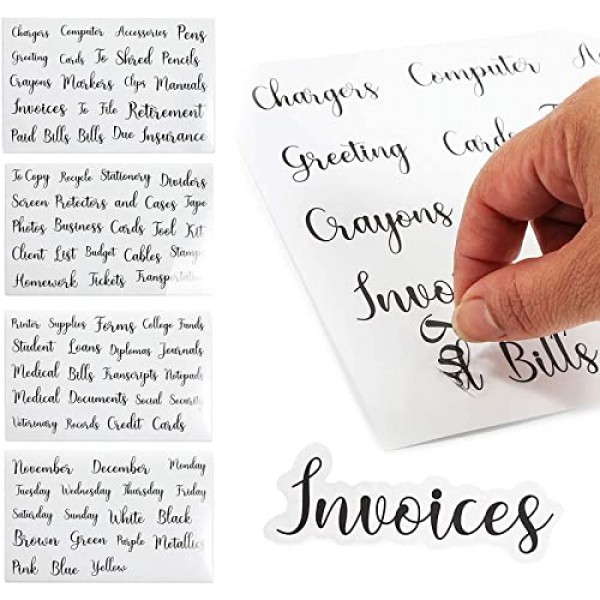 Chargers Computer Accessories Pens
Greeting Cards To Shred Pencils
Crayons Markers Clips Manuals
Invoices To File Retirement
Paid Bills Bills Due Insurance
To Copy Recycle Stationery Dividers
Screen Protectors and Cases Tape
Photos Business Cards Tool Kit
Client List Budget Cables Stamps
Homework Tickets Transportation
Printer Supplies Forms College Funds
Student Loans Diplomas Journals
Medical Bills Transcripts Notepads
Medical Documents Social Security
Veterinary Records Credit Cards
November December Monday
Tuesday Wednesday Thursday Friday
Saturday Sunday White Black
Brown Green Purple Metallics
Pink Blue Yellow
Chargers Computer Ac
Greeting Cards T
Crayons
Invo
Bills
Invoices